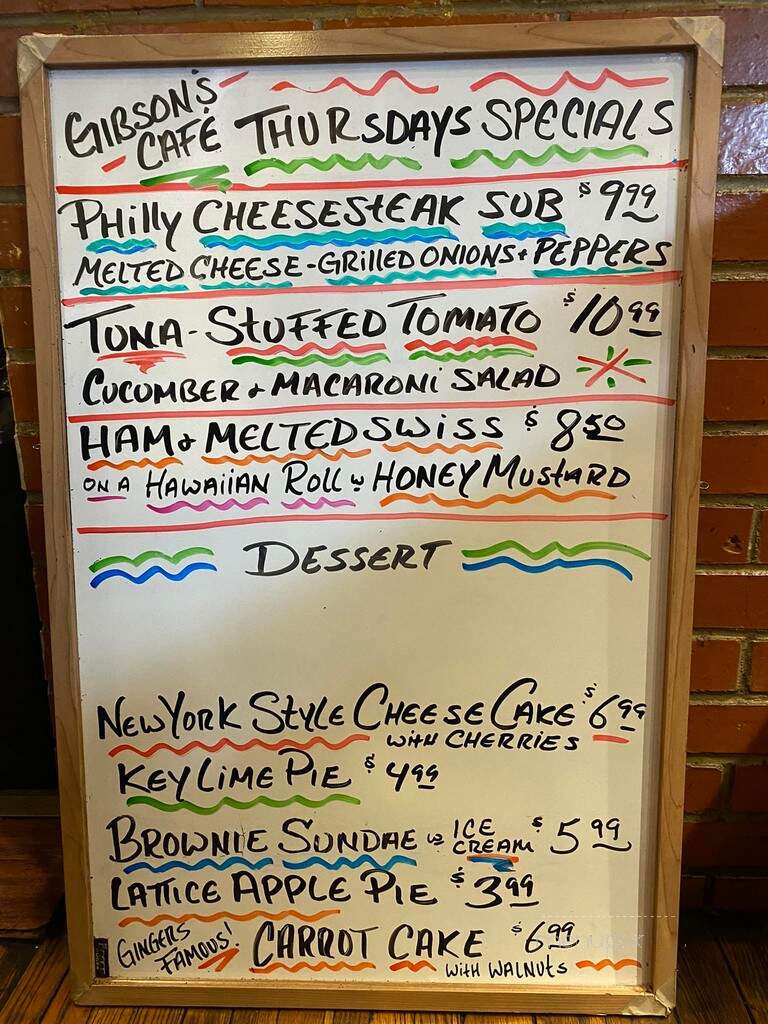 GIBSON'S CAFÉ THURSDAYS SPECIALS
PHilly CHEESESTEAK SUB $9.99
MELTED CHEESE - GRilled ONIONS + PEPPERS
TUNA - STUFFED TOMATO $10.99
CUCUMBER + MACARONi SALAD
HAM + MELTED SWISS $8.50
ON A HAWAiiAN ROLL w HONEY MUSTARD
DESSERT
NEW YORK STYLE CHEESE CAKE $6.99
WITH CHERRIES
KEY LIME PIE $4.99
BROWNIE SUNDAE w ICE CREAM $5.99
LATTICE APPLE PIE $3.99
GINGERS FAMOUS! CARROT CAKE $6.99
WITH WALNUTS